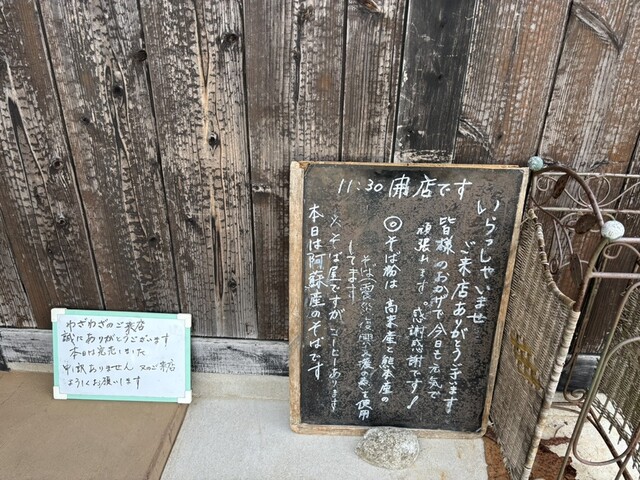 11:30 開店です
いらっしゃいませ
ご来店ありがとうございます
皆様のおかげで今日も元気で
頑張れます。感謝感謝です!
◎そば粉は 高菜産 熊本産の
そば
復興支援
使用
してます
※そば屋ですがコーヒーあります
本日は阿蘇産のそばです
わざわざのご来店
誠にありがとうございます
本日は完売しました
申し訳ありません 又のご来店
よろしくお願いします